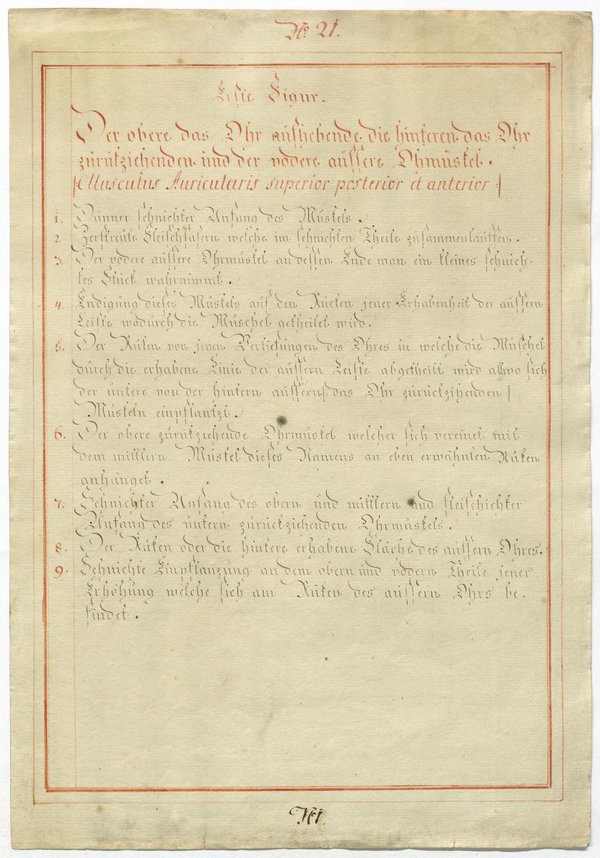 No 21.
Erste Figur.
Der obere das Ohr aufhebende die hinteren das Ohr
zürükziehenden und der vödere aüssere Ohrmüskel.
[Musculus Auricularis superior posterior et anterior]
1. Dünner sehnichter Anfang des Müskels.
2. Zerstreüte Fleischfasern welche im sehnichten Theile zusamenlauffen.
3. Der vödere aüssere Ohrmüskel an dessen Ende man ein kleines sehnich-
tes Stück wahrnimt.
4. Endigung dieses Müskels auf den Rücken jener Erhabenheit der aüssern
Leiste wodurch die Müschel getheilet wird.
5. Der Rüken von jenen Vertiefungen des Ohres in welche die Müschel
dürch die erhabene Linie der aüssern Leiste abgetheilt wird allwo sich
der üntere von der hintern aüssern [das Ohr zürückzihenden]
Müskeln einpflantzt.
6. Der obere zürükziehende Ohrmüskel welcher sich vereinet mit
dem mittlern Müskel dieses Namens an eben erwähnten Rüken
anhänget.
7. Sehnichter Anfang des obern und mittlern und fleischichter
Anfang des üntern zürückziehenden Ohrmüskels.
8. Der Rüken oder die hintere erhabene Fläche des aüssern Ohres.
9. Sehnichte Einpflanzüng an dem obern und vödern Theile jener
Erhöhung welche sich am Rüken des aüssern Ohrs be-
findet.